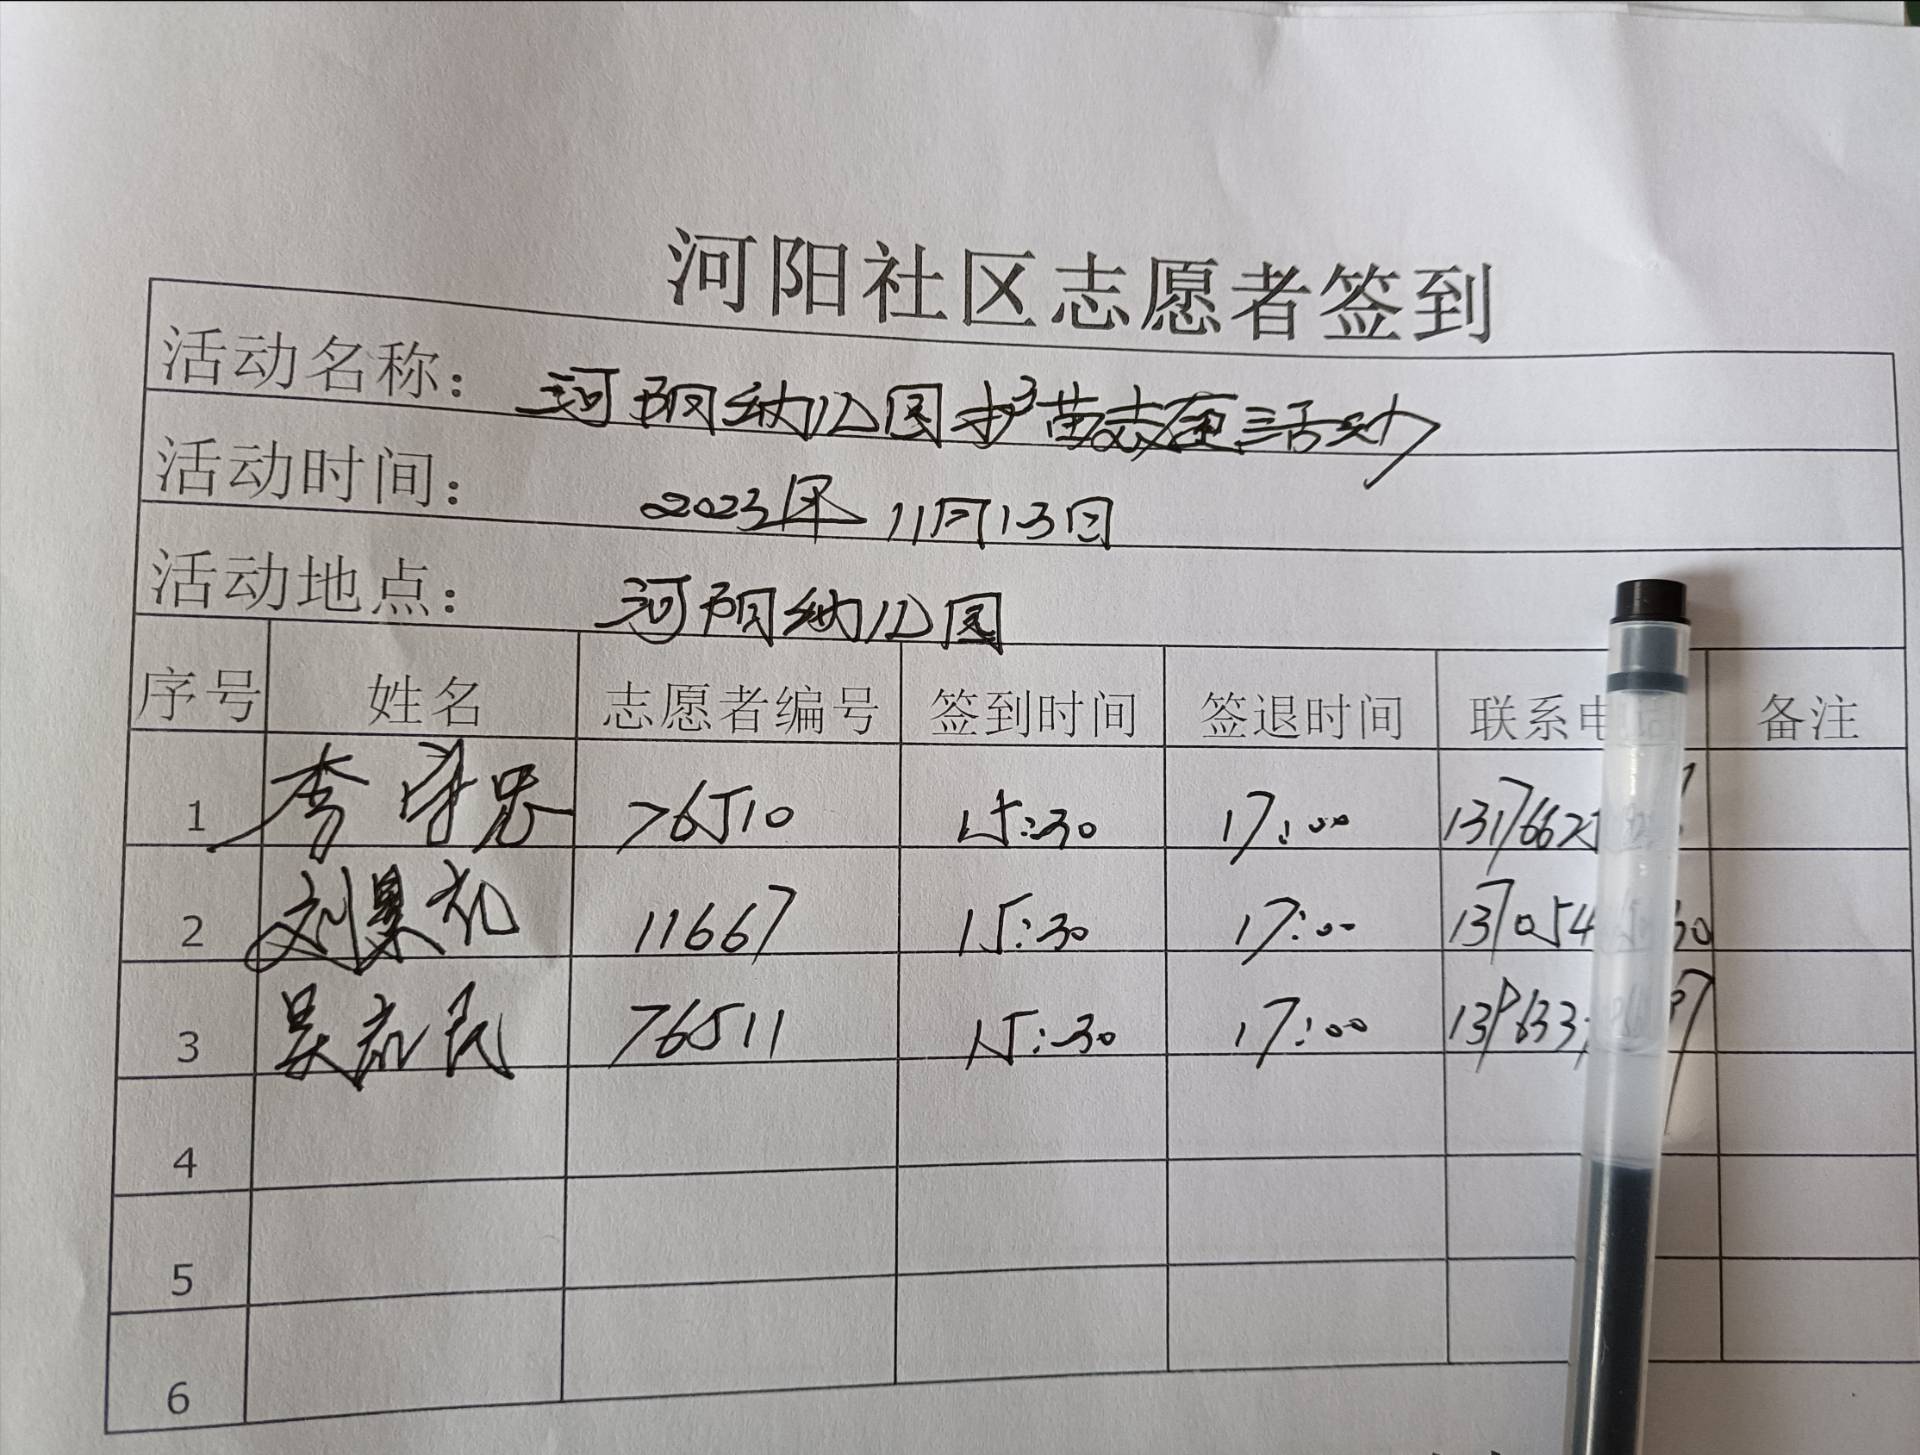 河阳社区志愿者签到
活动名称：河阳幼儿园护苗志愿活动
活动时间：2023年11月13日
活动地点：河阳幼儿园
序号 姓名 志愿者编号 签到时间 签退时间 联系电 备注
1 李守忠 76510 15:30 17:00 1317662
2 刘 礼 11667 15:30 17:00 137054 30
3 吴 民 76511 15:30 17:00 139633 37
4
5
6